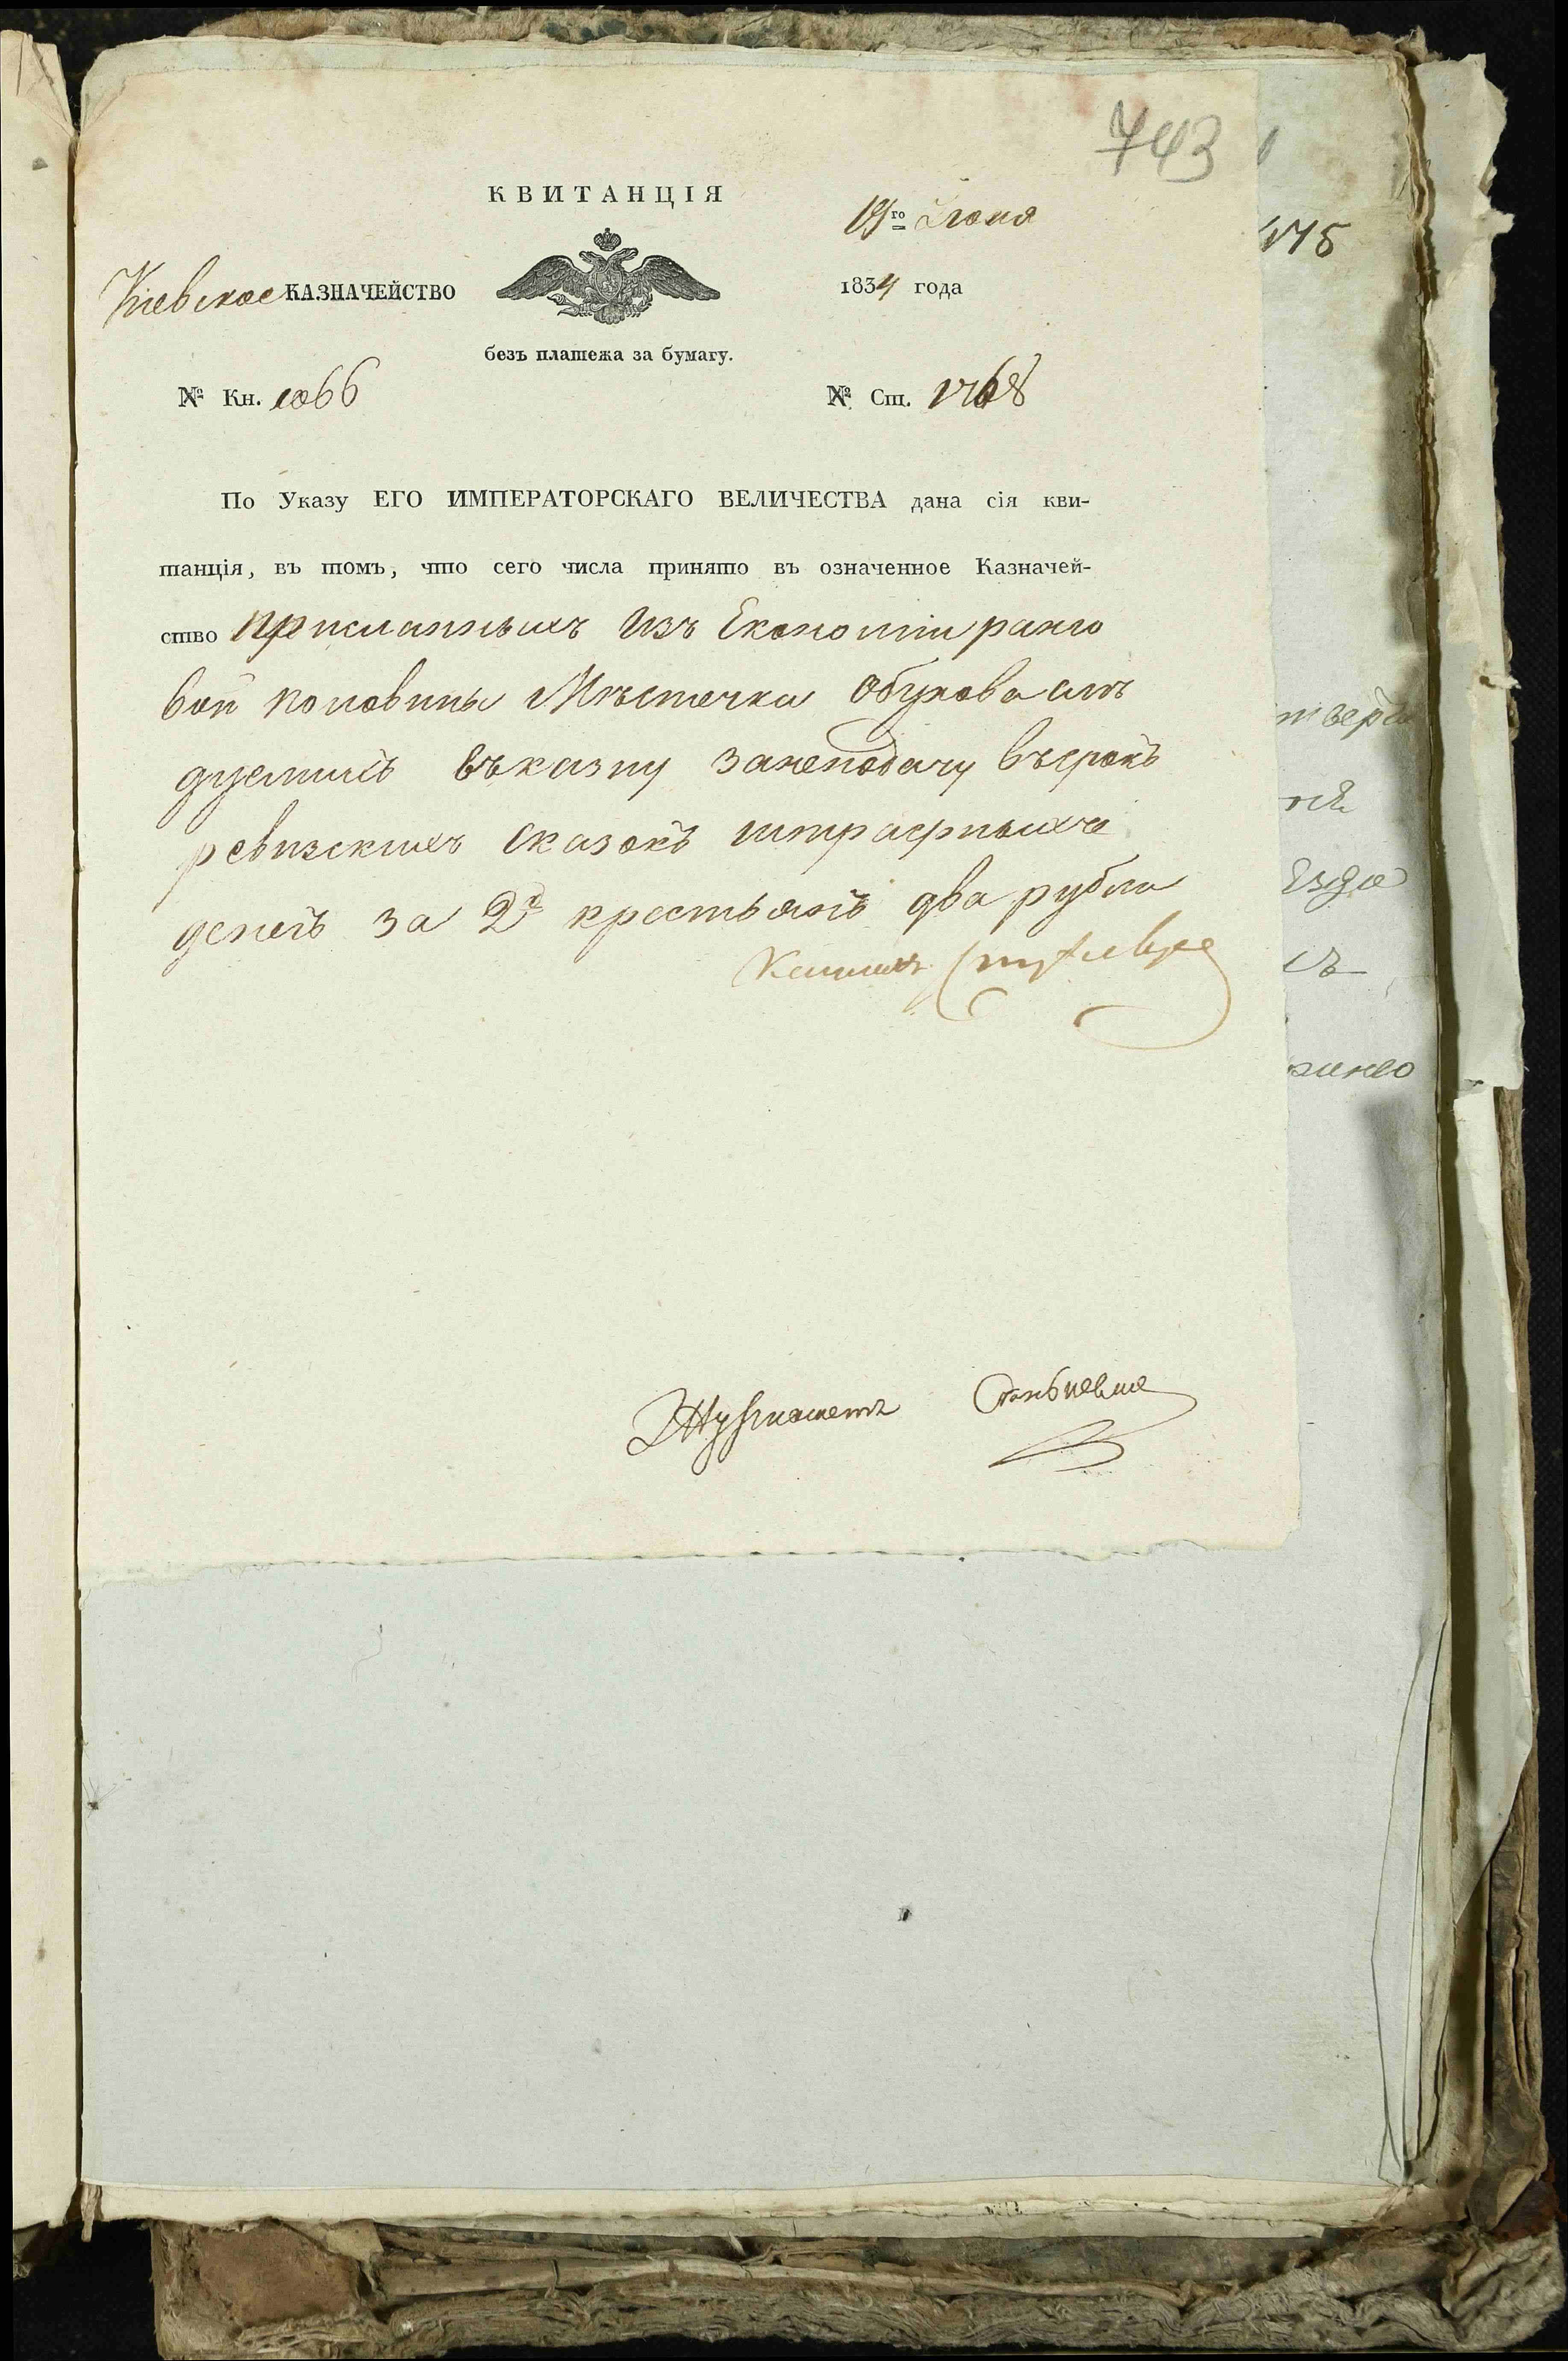 743
КВИТАНЦІЯ
19го Іюня
Кіевское КАЗНАЧЕЙСТВО
1834 года
безъ платежа за бумагу.
№ Кн. 1066
№ Ст. 1768
По Указу ЕГО ИМПЕРАТОРСКАГО ВЕЛИЧЕСТВА дана сія кви-
танція, въ томъ, что сего числа принято въ означенное Казначей-
ство присланныхъ изъ Економіи ранго
вой половины Мѣстечка Обухова слѣ
дуемыхъ въ казну за неподачу въ срокъ
ревизскихъ сказокъ штрафныхъ
денегъ за 2х крестьянъ два рубли
175